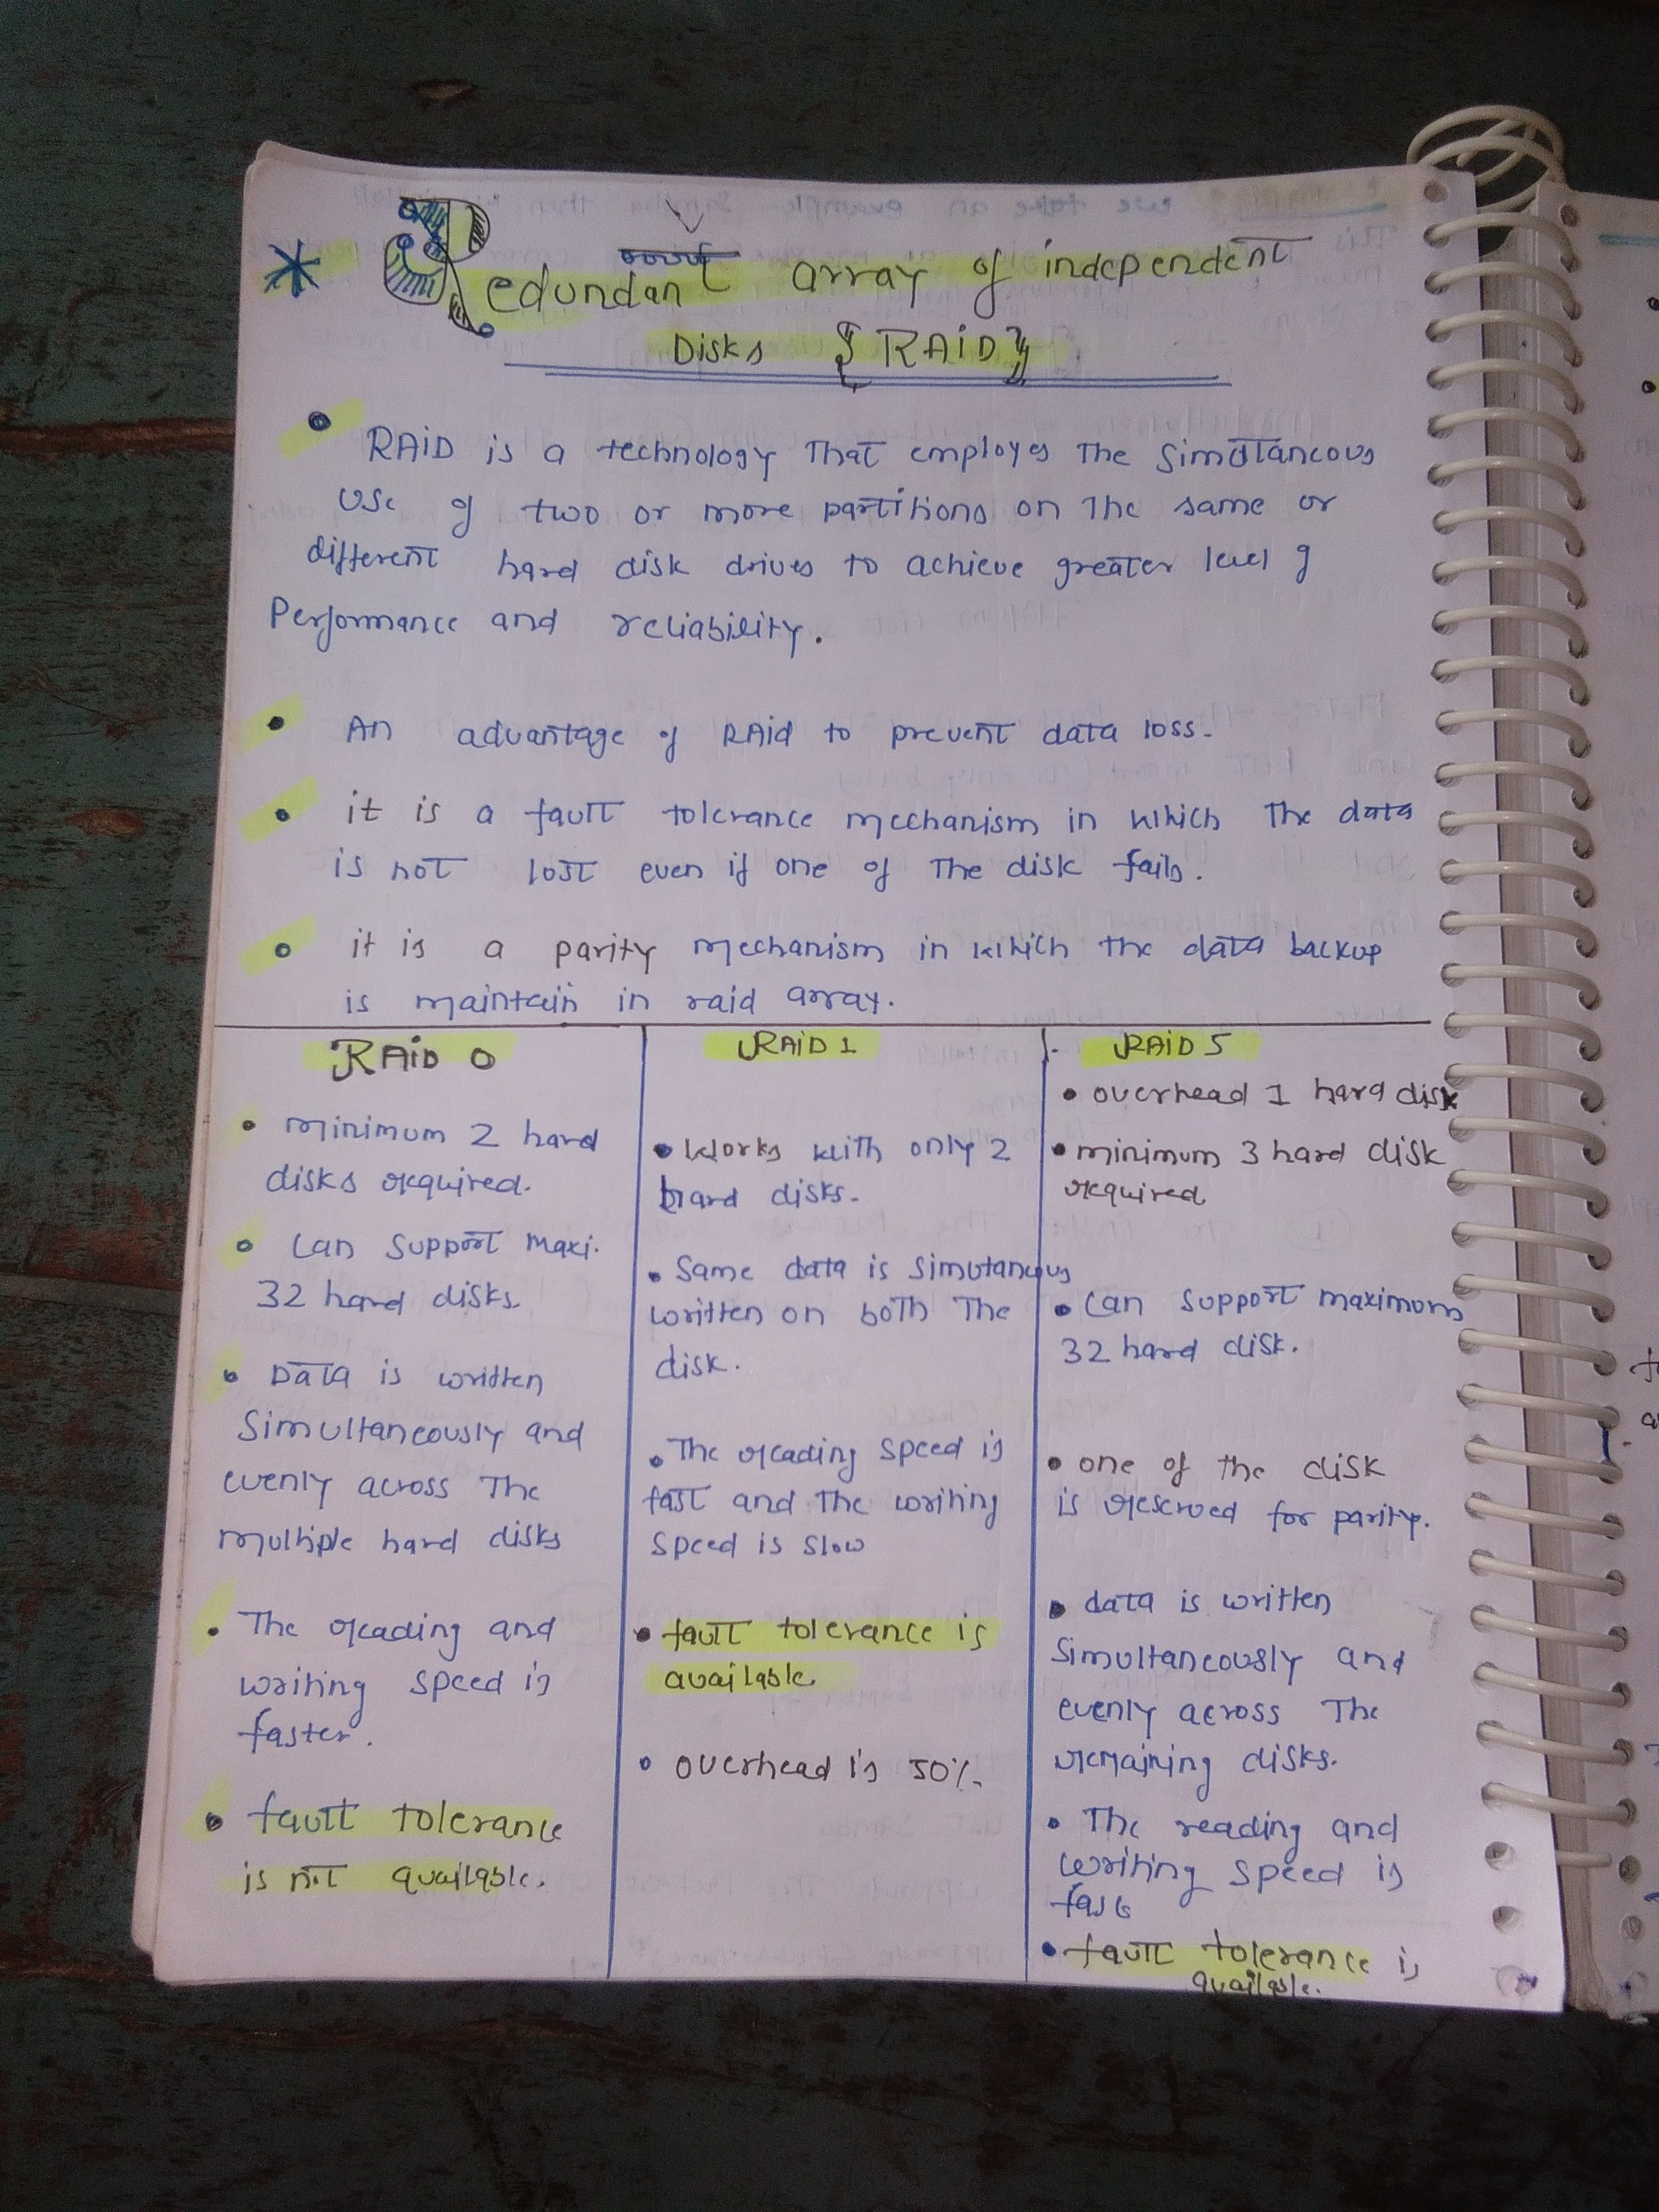 * Redundant array of independent
Disks {RAID}
• RAID is a technology that employes the simultaneous
use of two or more partitions on the same or
different hard disk drives to achieve greater level of
Performance and reliability.
• An advantage of RAID to prevent data loss.
• it is a fault tolerance mechanism in which the data
is not lost even if one of the disk fails.
• it is a parity mechanism in which the data backup
is maintain in raid array.
RAID 0
• minimum 2 hard
disks required.
• Can support maxi.
32 hard disks.
• Data is written
Simultaneously and
evenly across the
multiple hard disks
• The reading and
writing speed is
faster.
• fault tolerance
is not available.
RAID 1
• Works with only 2
hard disks.
• Same data is simutaneous
written on both the
disk.
• The reading speed is
fast and the writing
speed is slow
• fault tolerance is
available.
• overhead is 50%.
RAID 5
• overhead 1 hard disk
• minimum 3 hard disk
required.
• Can support maximum
32 hard disk.
• one of the disk
is reserved for parity.
• data is written
simultaneously and
evenly across the
remaining disks.
• The reading and
writing speed is
• fault tolerance is
available.